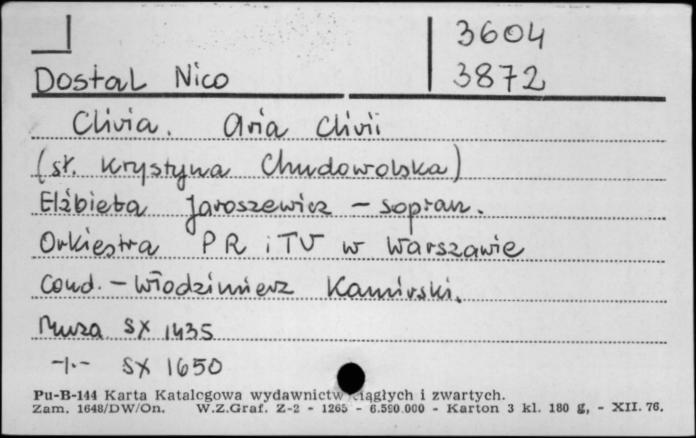 3604
Dostal Nico 3872
Clivia. Aria Clivii
(sł. Krystyna Chudowolska)
Elżbieta Jaroszewicz - sopran.
Orkiestra PR i TV w Warszawie
Cond. - Włodzimierz Kamirski.
Muza SX 1435
-1.- SX 1650
Pu-B-144 Karta Katalogowa wydawnictw ciągłych i zwartych.
Zam. 1648/DW/On. W.Z.Graf. Z-2 - 1265 - 6.590.000 - Karton 3 kl. 180 g, - XII. 76.